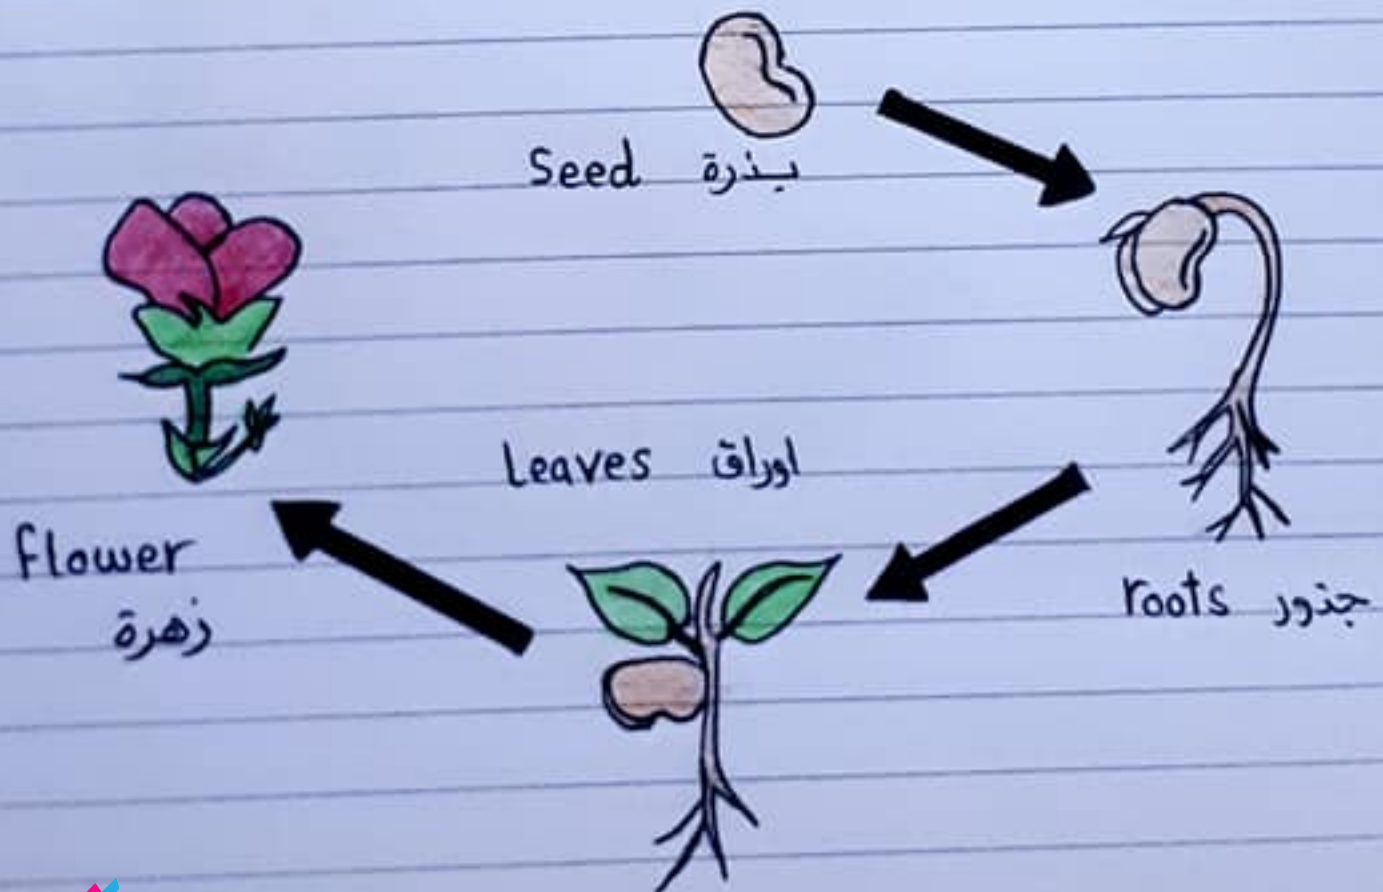 Seed بذرة
roots جذور
Leaves اوراق
flower
زهرة